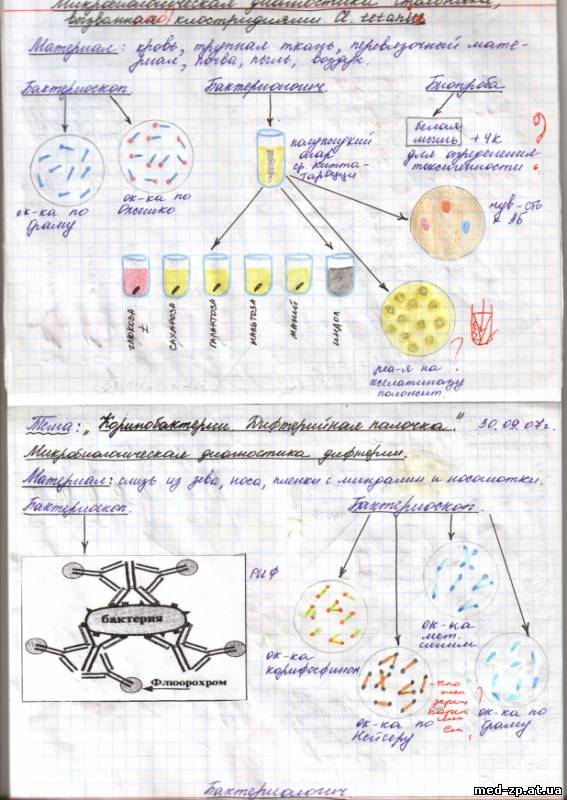 Микробиологическая диагностика столбняка,
вызванная клостридиями Cl. tetani.
Материал: кровь, трупная ткань, перевязочный мате-
риал, почва, пыль, воздух.
Бактериоскоп
Бактериологич
Биопроба
ок-ка по
Граму
ок-ка по
Ожешко
полужидкий
агар
ср Китта-
Тароцци
белая
мышь + ЧК
для определения
токсигенности
чув-сть
к АБ
глюкоза
±
сахароза
галактоза
мальтоза
манит
индол
реа-я на
желатиназу
положит.
?
Тема: „Коринобактерии. Дифтерийная палочка." 30.09.07г.
Микробиологическая диагностика дифтерии.
Материал: слизь из зева, носа, пленки с миндалин и носоглотки.
Бактериоскоп.
Бактериоскоп.
РИФ
бактерия
Флюорохром
ок-ка
корифосфином
ок-ка по
Нейсеру
ок-ка
мет.
синим
ок-ка по
Граму
?
Бактериологич
med-zp.at.ua